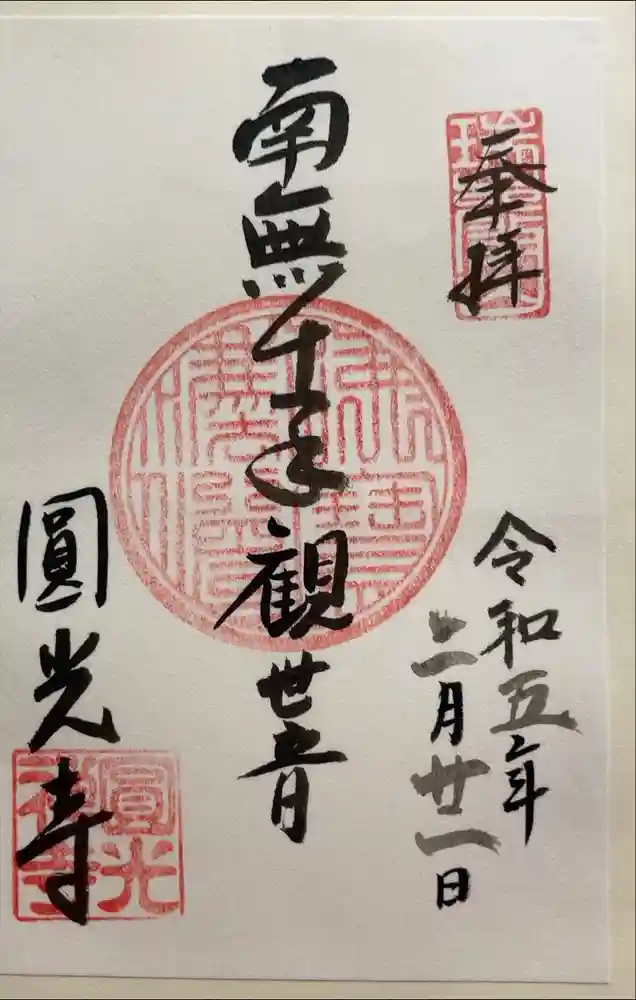 奉拝
南無千手観世音
令和五年
三月廿一日
圓光寺
圓光
禅寺